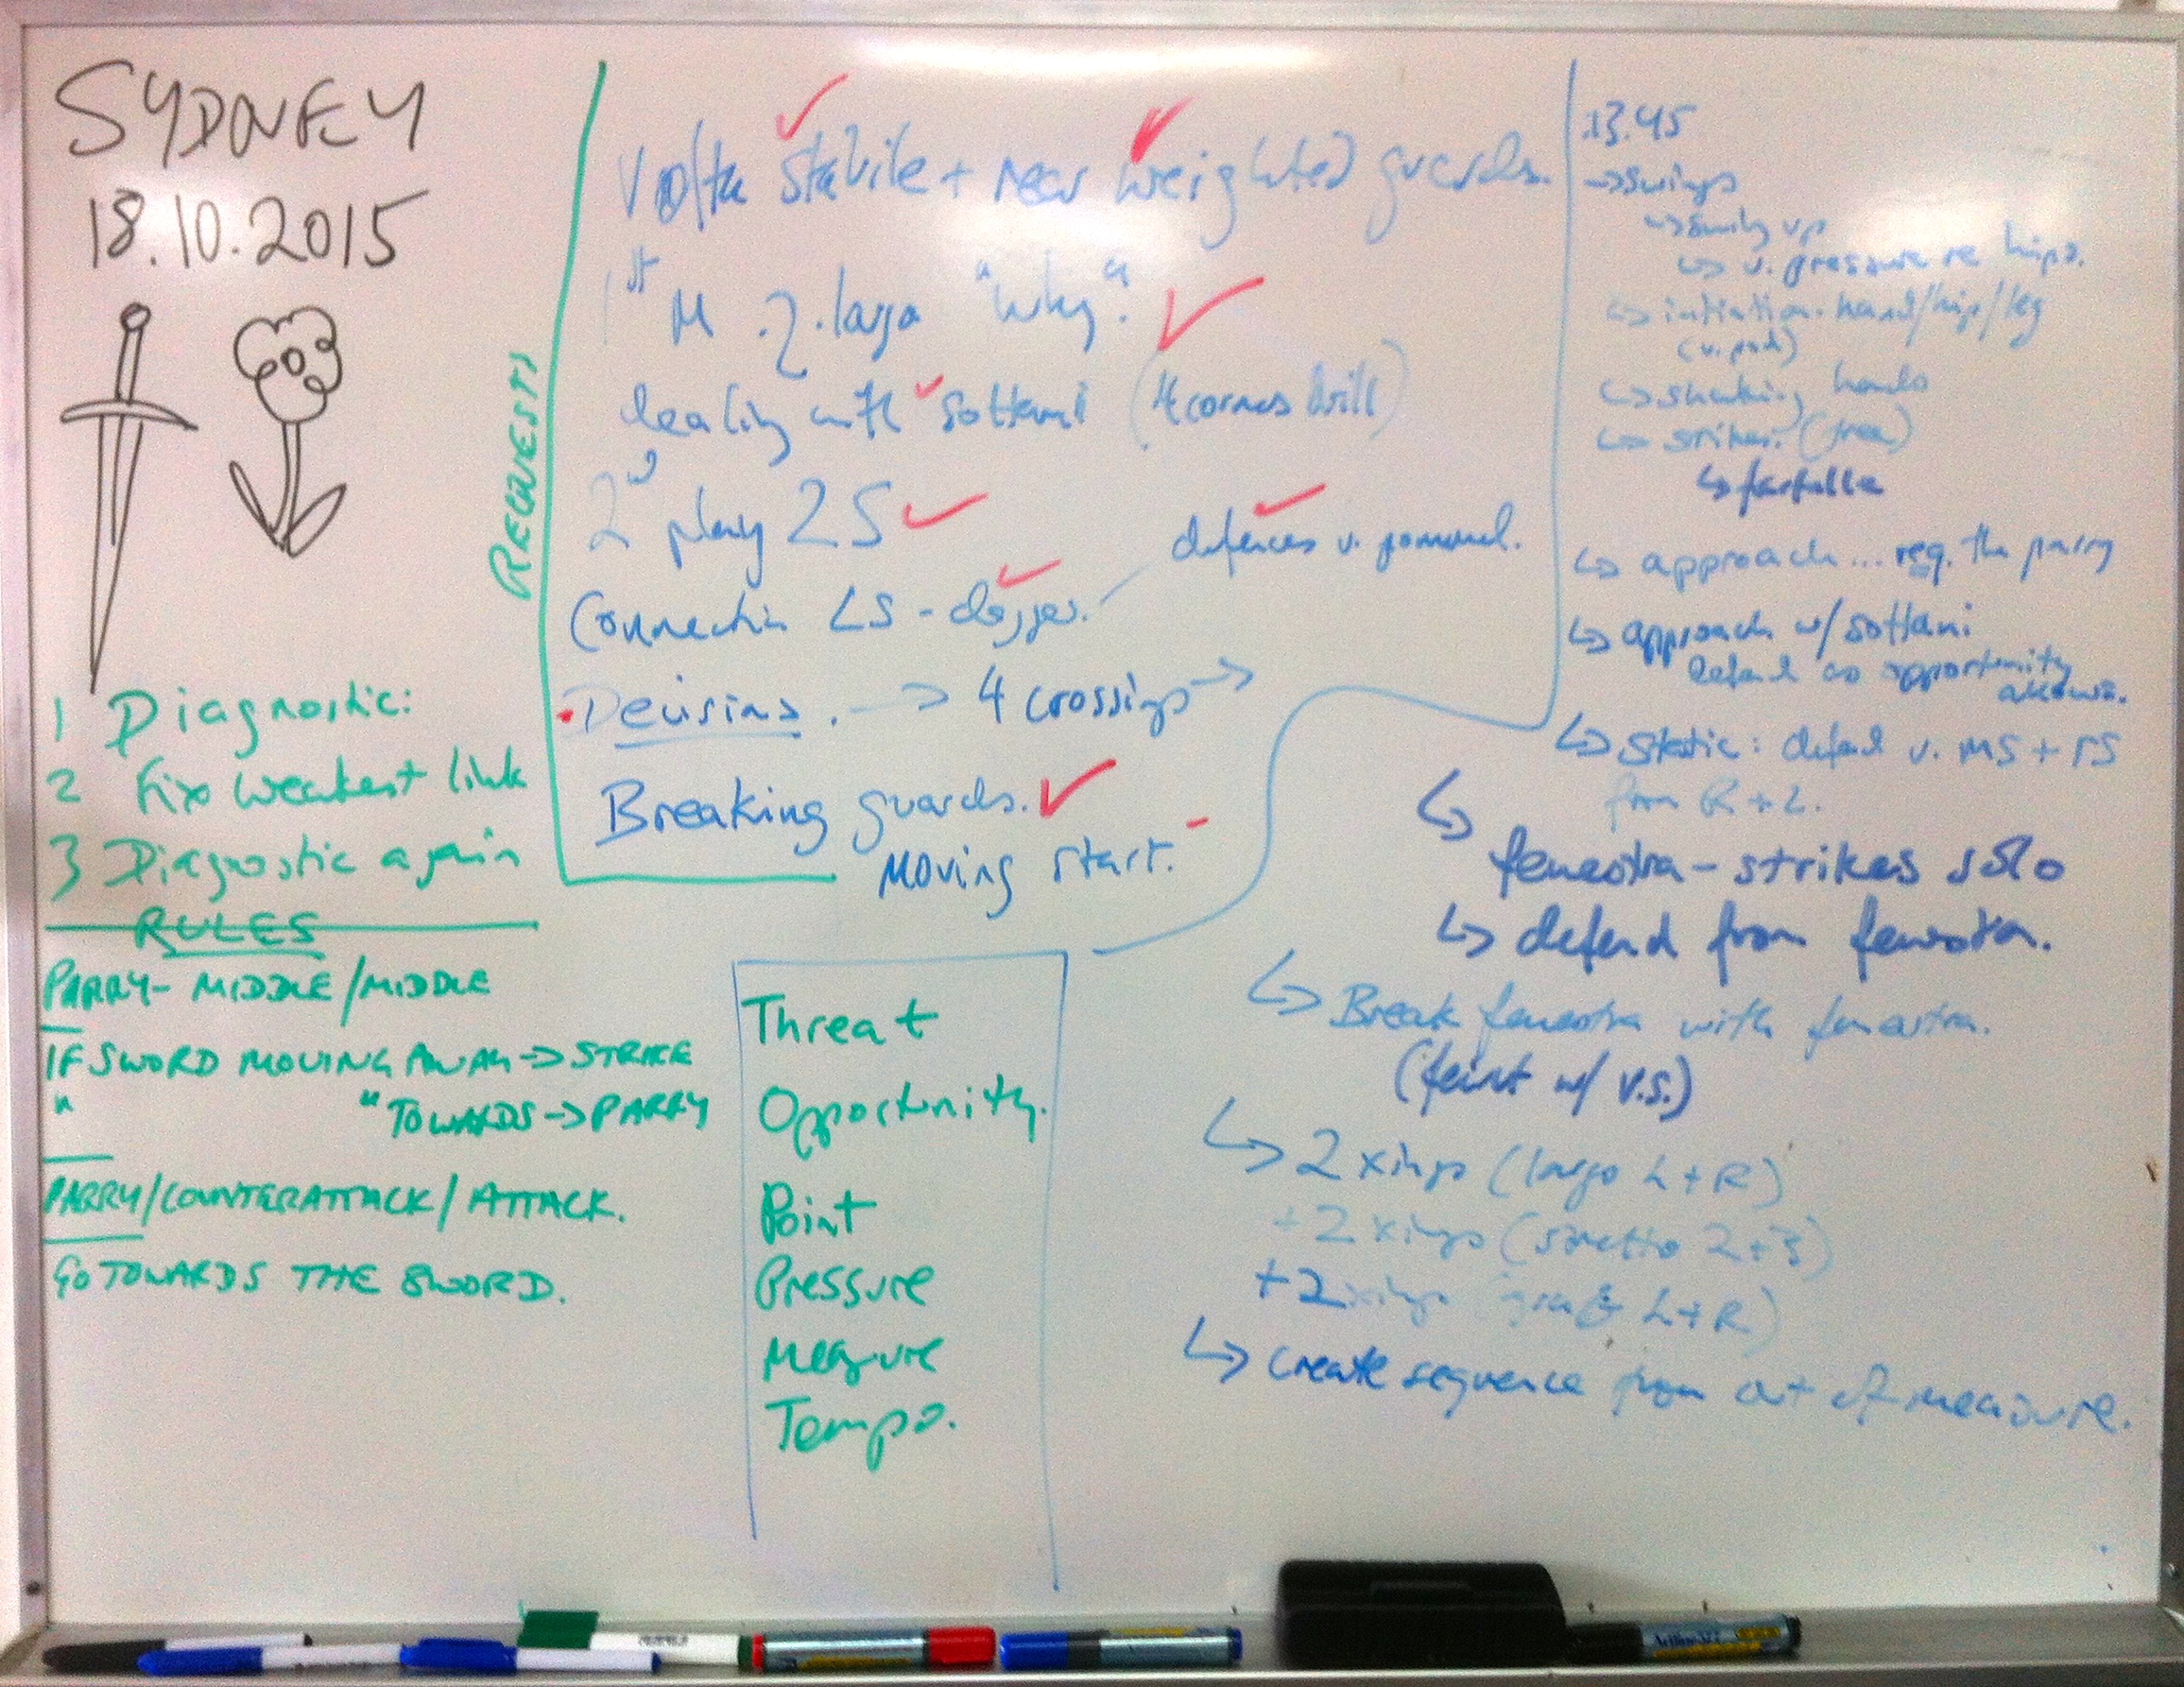 SYDNEY
18.10.2015
1 Diagnostic:
2 Fix weakest link
3 Diagnostic again
RULES
PARRY- MIDDLE/MIDDLE
IF SWORD MOVING AWAY -> STRIKE
" " TOWARDS -> PARRY
PARRY/COUNTERATTACK/ATTACK.
GO TOWARDS THE SWORD.
REQUESTS
Volta stabile + rear weighted guards.
1st M. Z. largo "why".
dealing with sottani (4 corners drill)
2nd play ZS
Connection LS - dagger. defences v. pommel.
Decisions. -> 4 crossings ->
Breaking guards.
Moving start.
Threat
Opportunity.
Point
Pressure
Measure
Tempo.
13.45
-> swings
-> swing up
-> v. pressure re hips.
-> initiation - hand/hip/leg
-> shaking hands
-> strikes: (free)
-> farfalla
-> approach... req. the parry
-> approach w/ sottani
defend as opportunity
allows.
-> Static: defend v. MS + FS
from R + L.
-> fenestra - strikes solo
-> defend from fenestra.
-> Break fenestra with fenestra.
(feint w/ v.s.)
-> 2 xings (largo L+R)
+2 xings (stretto 2+3)
+2 xings L+R)
-> create sequence from out of measure.